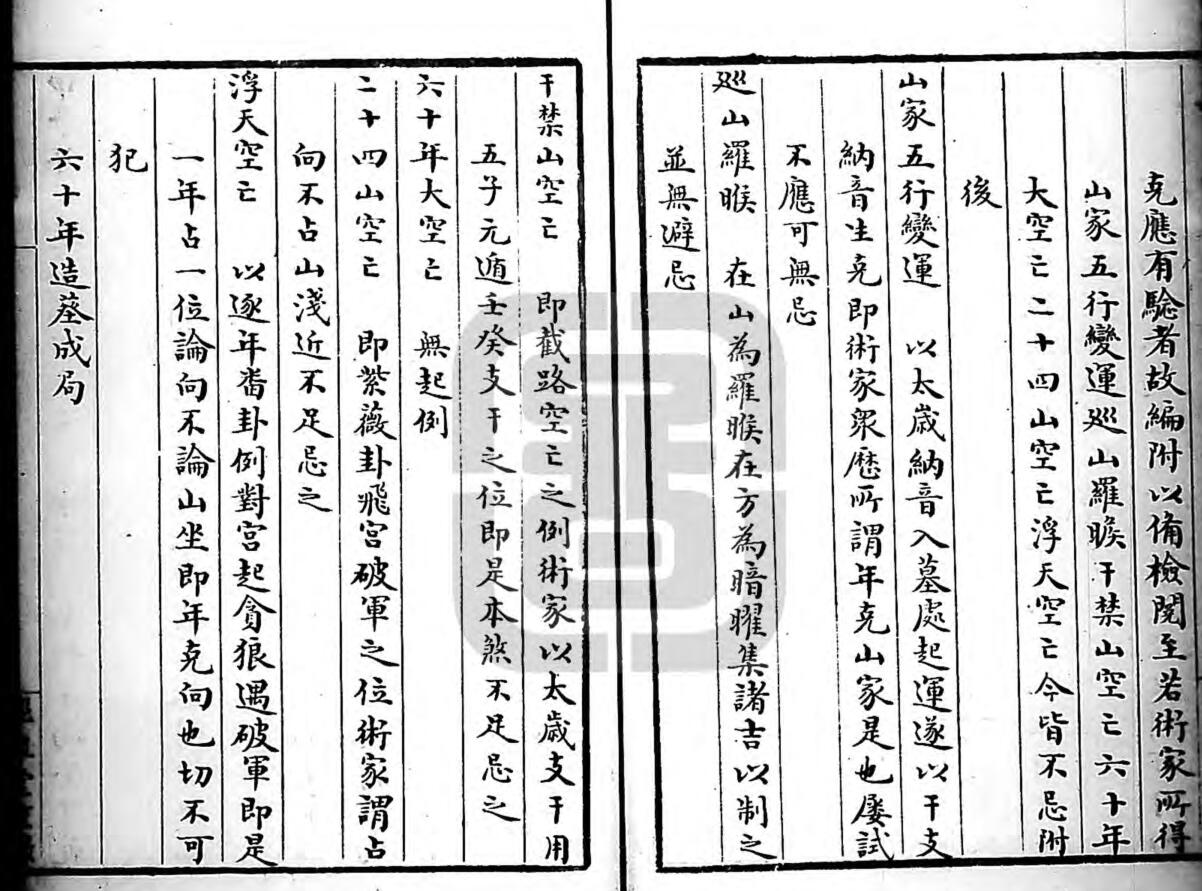 克應有驗者故編附以備檢閱至若術家所得
山家五行變運巡山羅睺干禁山空亡六十年
大空亡二十四山空亡浮天空亡今皆不忌附
後
山家五行變運　以太歲納音入墓處起運遂以干支
納音生克即術家眾曆所謂年克山家是也屢試
不應可無忌
巡山羅睺　在山為羅睺在方為暗曜集諸吉以制之
並無避忌
干禁山空亡　即截路空亡之例術家以太歲支干用
五子元遁壬癸支干之位即是本煞不足忌之
六十年大空亡　無起例
二十四山空亡　即紫薇卦飛宮破軍之位術家謂占
向不占山淺近不足忌之
浮天空亡　以逐年畨卦例對宮起貪狼遇破軍即是
一年占一位論向不論山坐即年克向也切不可
犯
六十年造葬成局